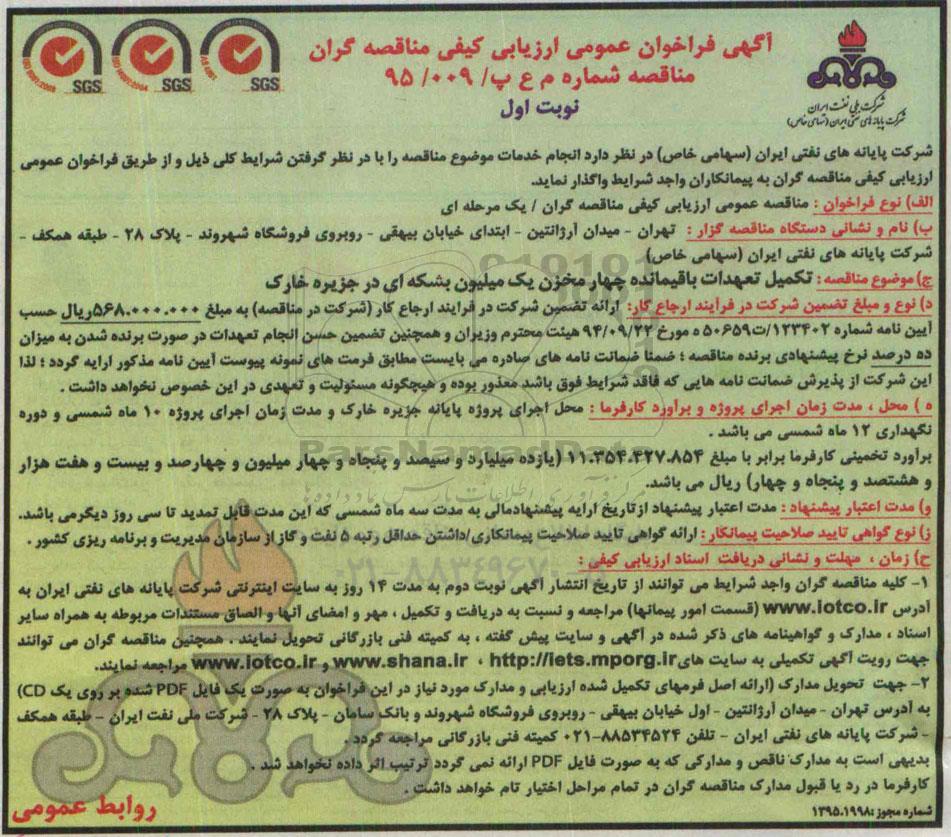 آگهی فراخوان عمومی ارزیابی کیفی مناقصه گران
مناقصه شماره م ع پ/ ۰۰۹/ ۹۵
نوبت اول
SGS
SGS
SGS
شرکت ملی نفت ایران
شرکت پایانه های نفتی ایران (سهامی خاص)
شرکت پایانه های نفتی ایران (سهامی خاص) در نظر دارد انجام خدمات موضوع مناقصه را با در نظر گرفتن شرایط کلی ذیل و از طریق فراخوان عمومی
ارزیابی کیفی مناقصه گران به پیمانکاران واجد شرایط واگذار نماید.
الف) نوع فراخوان : مناقصه عمومی ارزیابی کیفی مناقصه گران / یک مرحله ای
ب) نام و نشانی دستگاه مناقصه گزار : تهران - میدان آرژانتین - ابتدای خیابان بیهقی - روبروی فروشگاه شهروند - پلاک ۲۸ - طبقه همکف -
شرکت پایانه های نفتی ایران (سهامی خاص)
ج) موضوع مناقصه : تکمیل تعهدات باقیمانده چهار مخزن یک میلیون بشکه ای در جزیره خارک
د) نوع و مبلغ تضمین شرکت در فرآیند ارجاع کار: ارائه تضمین شرکت در فرایند ارجاع کار (شرکت در مناقصه) به مبلغ ۵۶۸.۰۰۰.۰۰۰ریال حسب
آیین نامه شماره ۱۲۳۴۰۲/ت۵۰۶۵۹ ه مورخ ۹۴/۰۹/۲۲ هیئت محترم وزیران و همچنین تضمین حسن انجام تعهدات در صورت برنده شدن به میزان
ده درصد نرخ پیشنهادی برنده مناقصه ؛ ضمناً ضمانت نامه های صادره می بایست مطابق فرمت های نمونه پیوست آیین نامه مذکور ارایه گردد ؛ لذا
این شرکت از پذیرش ضمانت نامه هایی که فاقد شرایط فوق باشد معذور بوده و هیچگونه مسئولیت و تعهدی در این خصوص نخواهد داشت .
ه ) محل ، مدت زمان اجرای پروژه و برآورد کارفرما : محل اجرای پروژه پایانه جزیره خارک و مدت زمان اجرای پروژه ۱۰ ماه شمسی و دوره
نگهداری ۱۲ ماه شمسی می باشد .
برآورد تخمینی کارفرما برابر با مبلغ ۱۱.۳۵۴.۴۲۷.۸۵۴ (یازده میلیارد و سیصد و پنجاه و چهار میلیون و چهارصد و بیست و هفت هزار
و هشتصد و پنجاه و چهار) ریال می باشد.
و) مدت اعتبار پیشنهاد : مدت اعتبار پیشنهاد از تاریخ ارایه پیشنهادمالی به مدت سه ماه شمسی که این مدت قابل تمدید تا سی روز دیگر می باشد.
ز) نوع گواهی تایید صلاحیت پیمانکار : ارائه گواهی تایید صلاحیت پیمانکاری/داشتن حداقل رتبه ۵ نفت و گاز از سازمان مدیریت و برنامه ریزی کشور .
ح) زمان ، مهلت و نشانی دریافت اسناد ارزیابی کیفی :
۱- کلیه مناقصه گران واجد شرایط می توانند از تاریخ انتشار آگهی نوبت دوم به مدت ۱۴ روز به سایت اینترنتی شرکت پایانه های نفتی ایران به
آدرس www.iotco.ir (قسمت امور پیمانها) مراجعه و نسبت به دریافت و تکمیل ، مهر و امضای آنها و الصاق مستندات مربوطه به همراه سایر
اسناد ، مدارک و گواهینامه های ذکر شده در آگهی و سایت پیش گفته ، به کمیته فنی بازرگانی تحویل نمایند . همچنین مناقصه گران می توانند
جهت رویت آگهی تکمیلی به سایت های http://iets.mporg.ir ، www.shana.ir و www.iotco.ir مراجعه نمایند.
۲- جهت تحویل مدارک (ارائه اصل فرمهای تکمیل شده ارزیابی و مدارک مورد نیاز در این فراخوان به صورت یک فایل PDF شده بر روی یک CD)
به آدرس تهران - میدان آرژانتین - اول خیابان بیهقی - روبروی فروشگاه شهروند و بانک سامان - پلاک ۲۸ - شرکت ملی نفت ایران - طبقه همکف
- شرکت پایانه های نفتی ایران - تلفن ۸۸۵۳۴۵۲۴-۰۲۱ کمیته فنی بازرگانی مراجعه گردد .
بدیهی است به مدارک ناقص و مدارکی که به صورت فایل PDF ارائه نمی گردد ترتیب اثر داده نخواهد شد .
کارفرما در رد یا قبول مدارک مناقصه گران در تمام مراحل اختیار تام خواهد داشت .
شماره مجوز :۱۳۹۵.۱۹۹۸
روابط عمومی
ParsNamadData
۰۲۱-۸۸۳۴۹۶۷۰